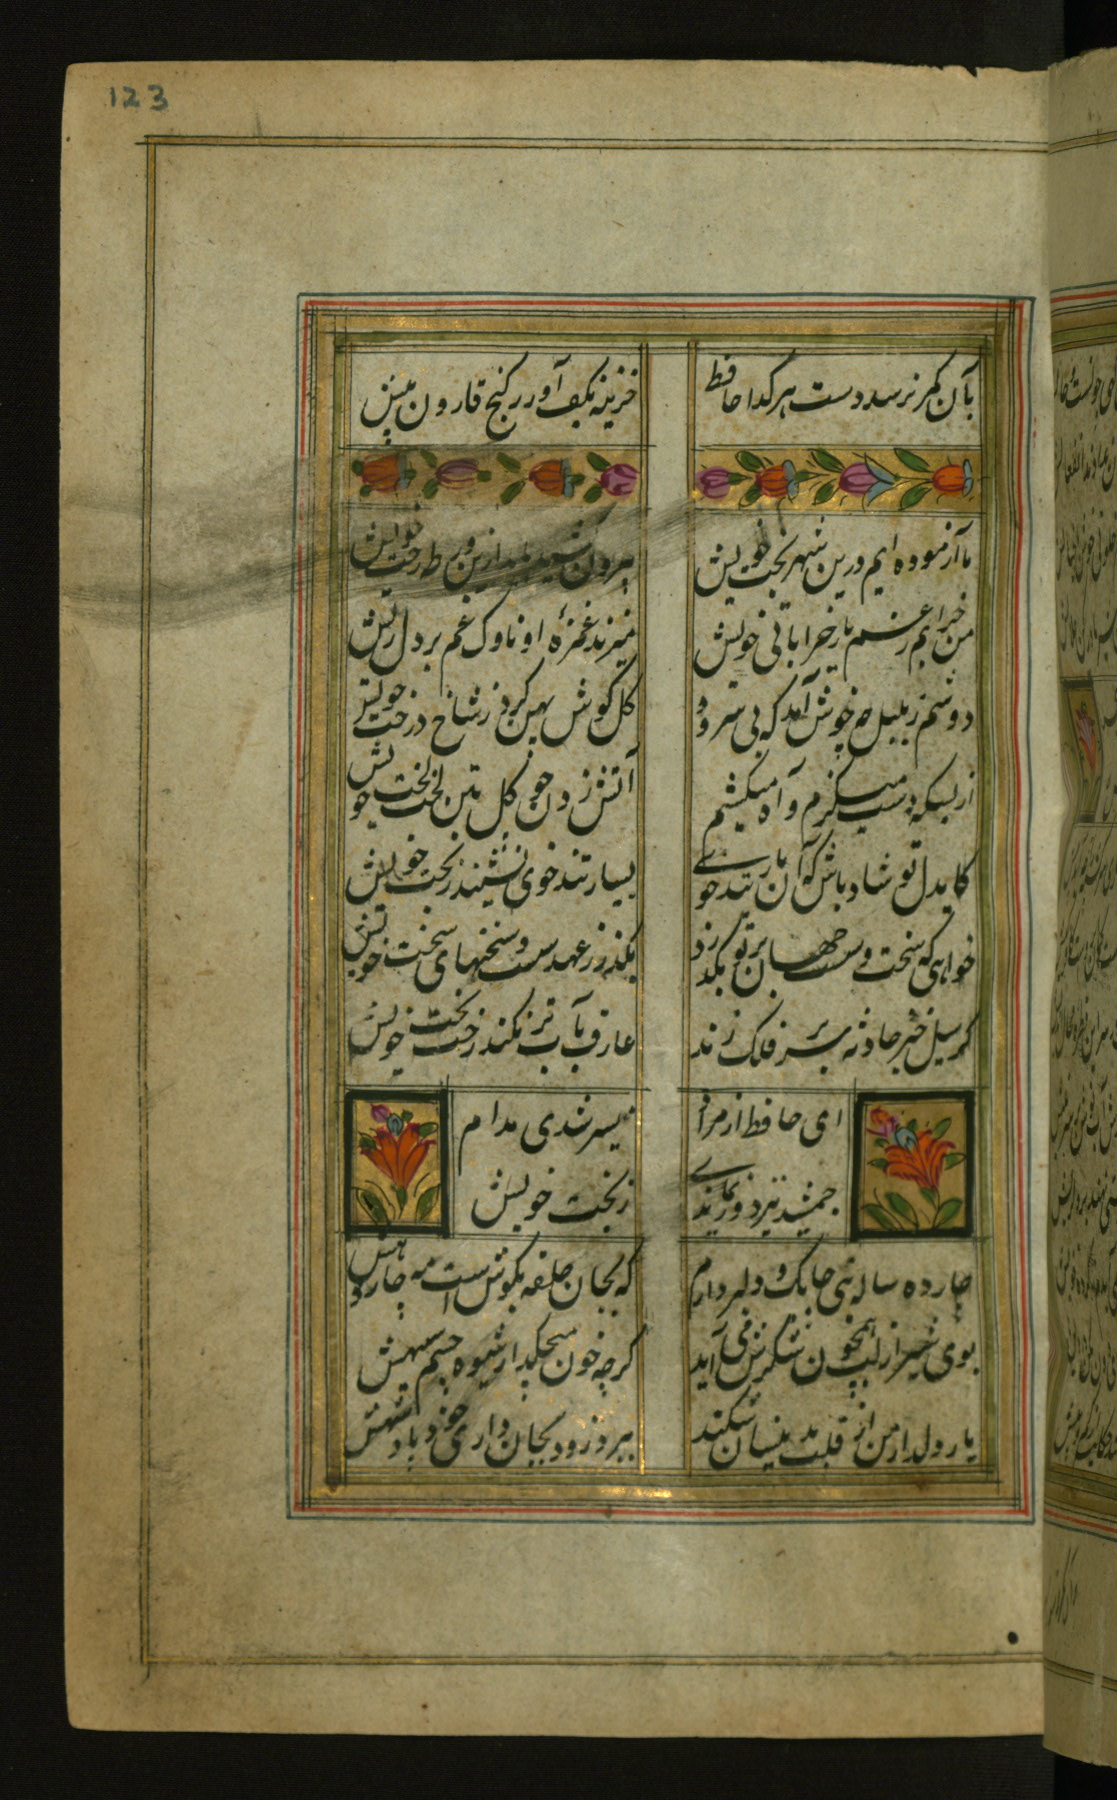 123
بآن کمر نرسد دست هر گدا حافظ
خزینه بکف آور ز کنج قارون بیش
ما آزموده ایم درین شهر بخت خویش
بیرون کشید باید ازین ورطه رخت خویش
من خرابم ز غم یار خراباتی خویش
میزند غمزهٔ او ناوک غم بر دل ریش
دوشم ز بلبلی چه خوش آمد که می سرود
گل گوش پهن کرده ز شاخ درخت خویش
از بسکه دست میگزم و آه میکشم
آتش زدن چون گل بتن لخت لخت خویش
کایدل تو شاد باش که آن یار تندخوی
بسیار تندخوی نشیند ز بخت خویش
خواهی که سخت و سست جهان بر تو بگذرد
بگذر ز عهد سست و سخنهای سخت خویش
گر سیل خیز حادثه سر بر فلک زند
عارف بآب تر نکند رخت بخت خویش
ای حافظ ار مراد
میسر شدی مدام
جمشید نیز دور نماندی
ز بخت خویش
چارده ساله بتی چابک و دلبر دارم
که بجان حلقه بگوش است مه چاردهش
بوی شیر از لب همچون شکرش می آید
گرچه خون میچکد از شیوه چشم سیهش
یار دلدار من ار قلب بدینسان شکند
ببرد زود بجان داری خود پادشهش